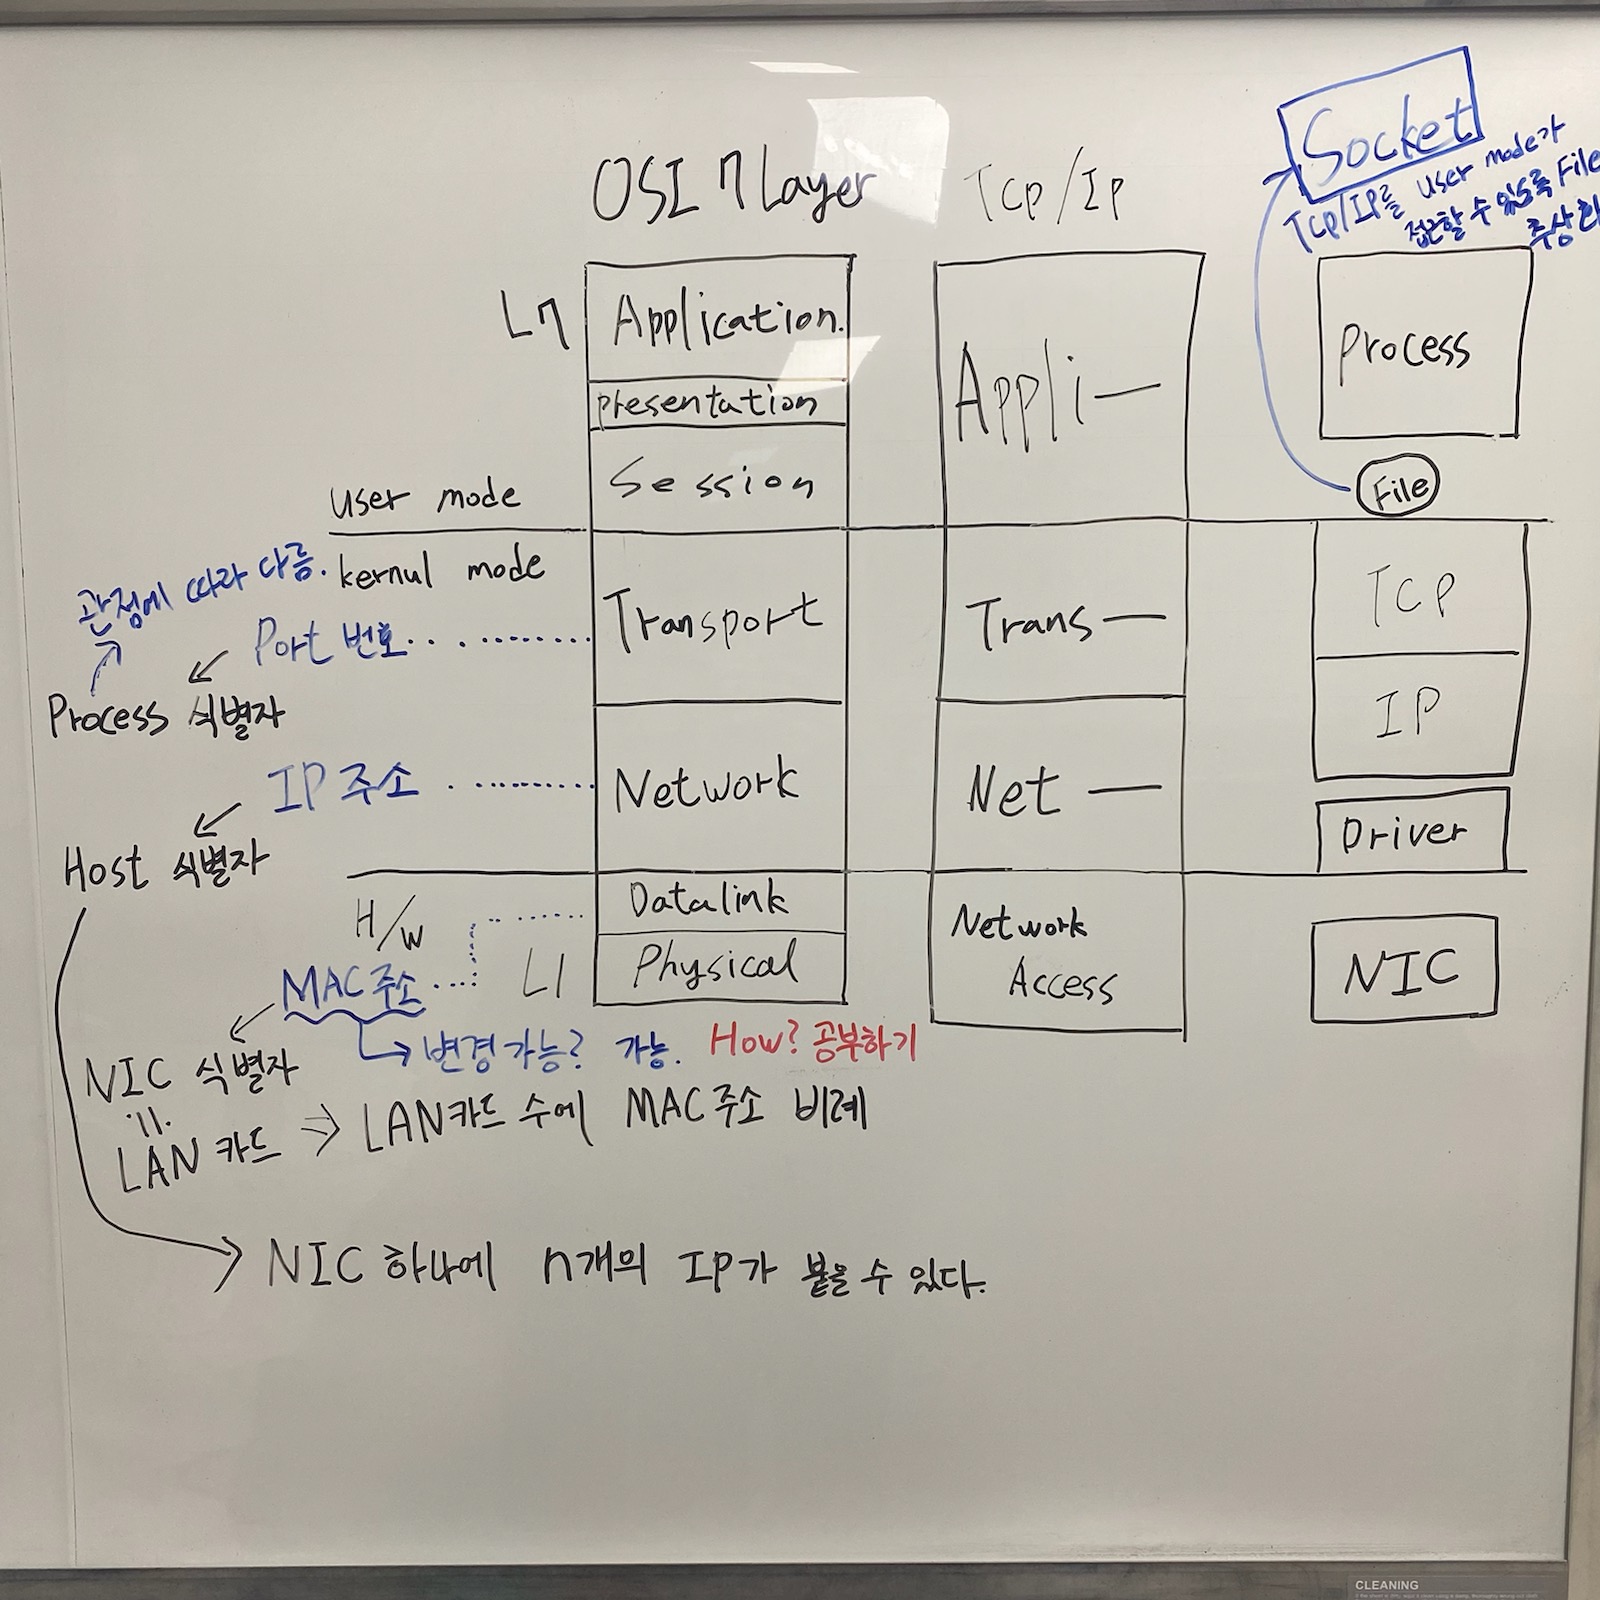 Socket
TCP/IP를 user mode가
접근할 수 있도록 File
추상화
OSI 7 Layer
TCP/IP
L7
Application.
presentation
Session
Transport
Network
Datalink
Physical
L1
Appli—
Trans—
Net —
Network
Access
Process
File
TCP
IP
Driver
NIC
user mode
kernul mode
관점에 따라 다름.
Port 번호
Process 식별자
IP 주소
Host 식별자
H/W
MAC 주소
변경 가능? 가능. How? 공부하기
NIC 식별자
LAN 카드 → LAN카드 수에 MAC 주소 비례
NIC 하나에 n개의 IP가 붙을 수 있다.
CLEANING